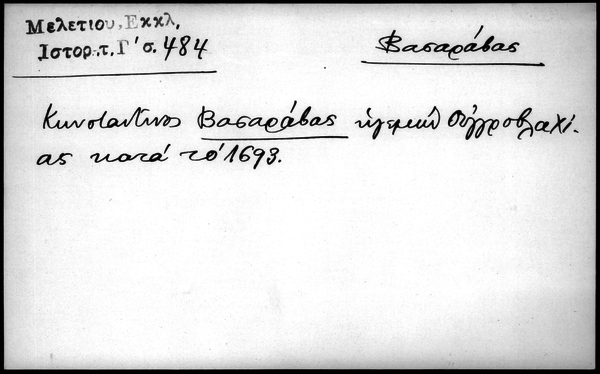 Μελετίου, Εκκλ,
Ιστορ. τ. Γ' σ. 484
Βασαράβας
Κωνσταντίνος Βασαράβας ηγεμών Ουγγροβλαχί-
ας κατά τό 1693.